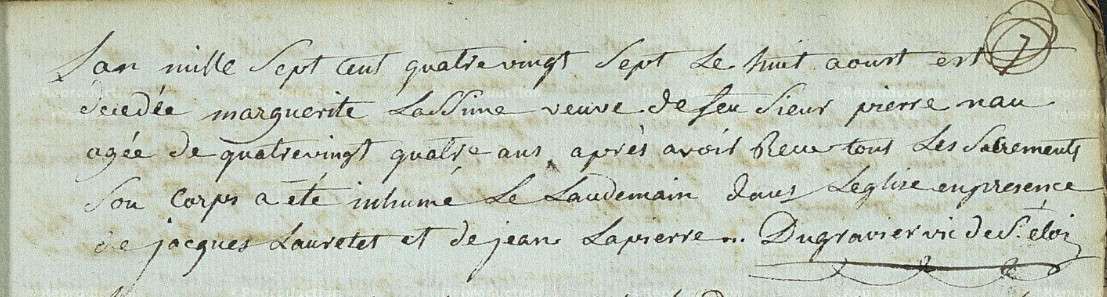 Lan mille Sept Cent quatrevingt Sept Le huit aoust est 7
décedée marguerite LasSime veuve de feu Sieur pierre nau
agée de quatrevingt quatre ans après avoir Reçu tout Les Sacrements
Son corps a été inhumé Le Laudemain dans Leglise en presence
de jacques Lauretet et de jean Lapierre Dugravier vic de St éloi